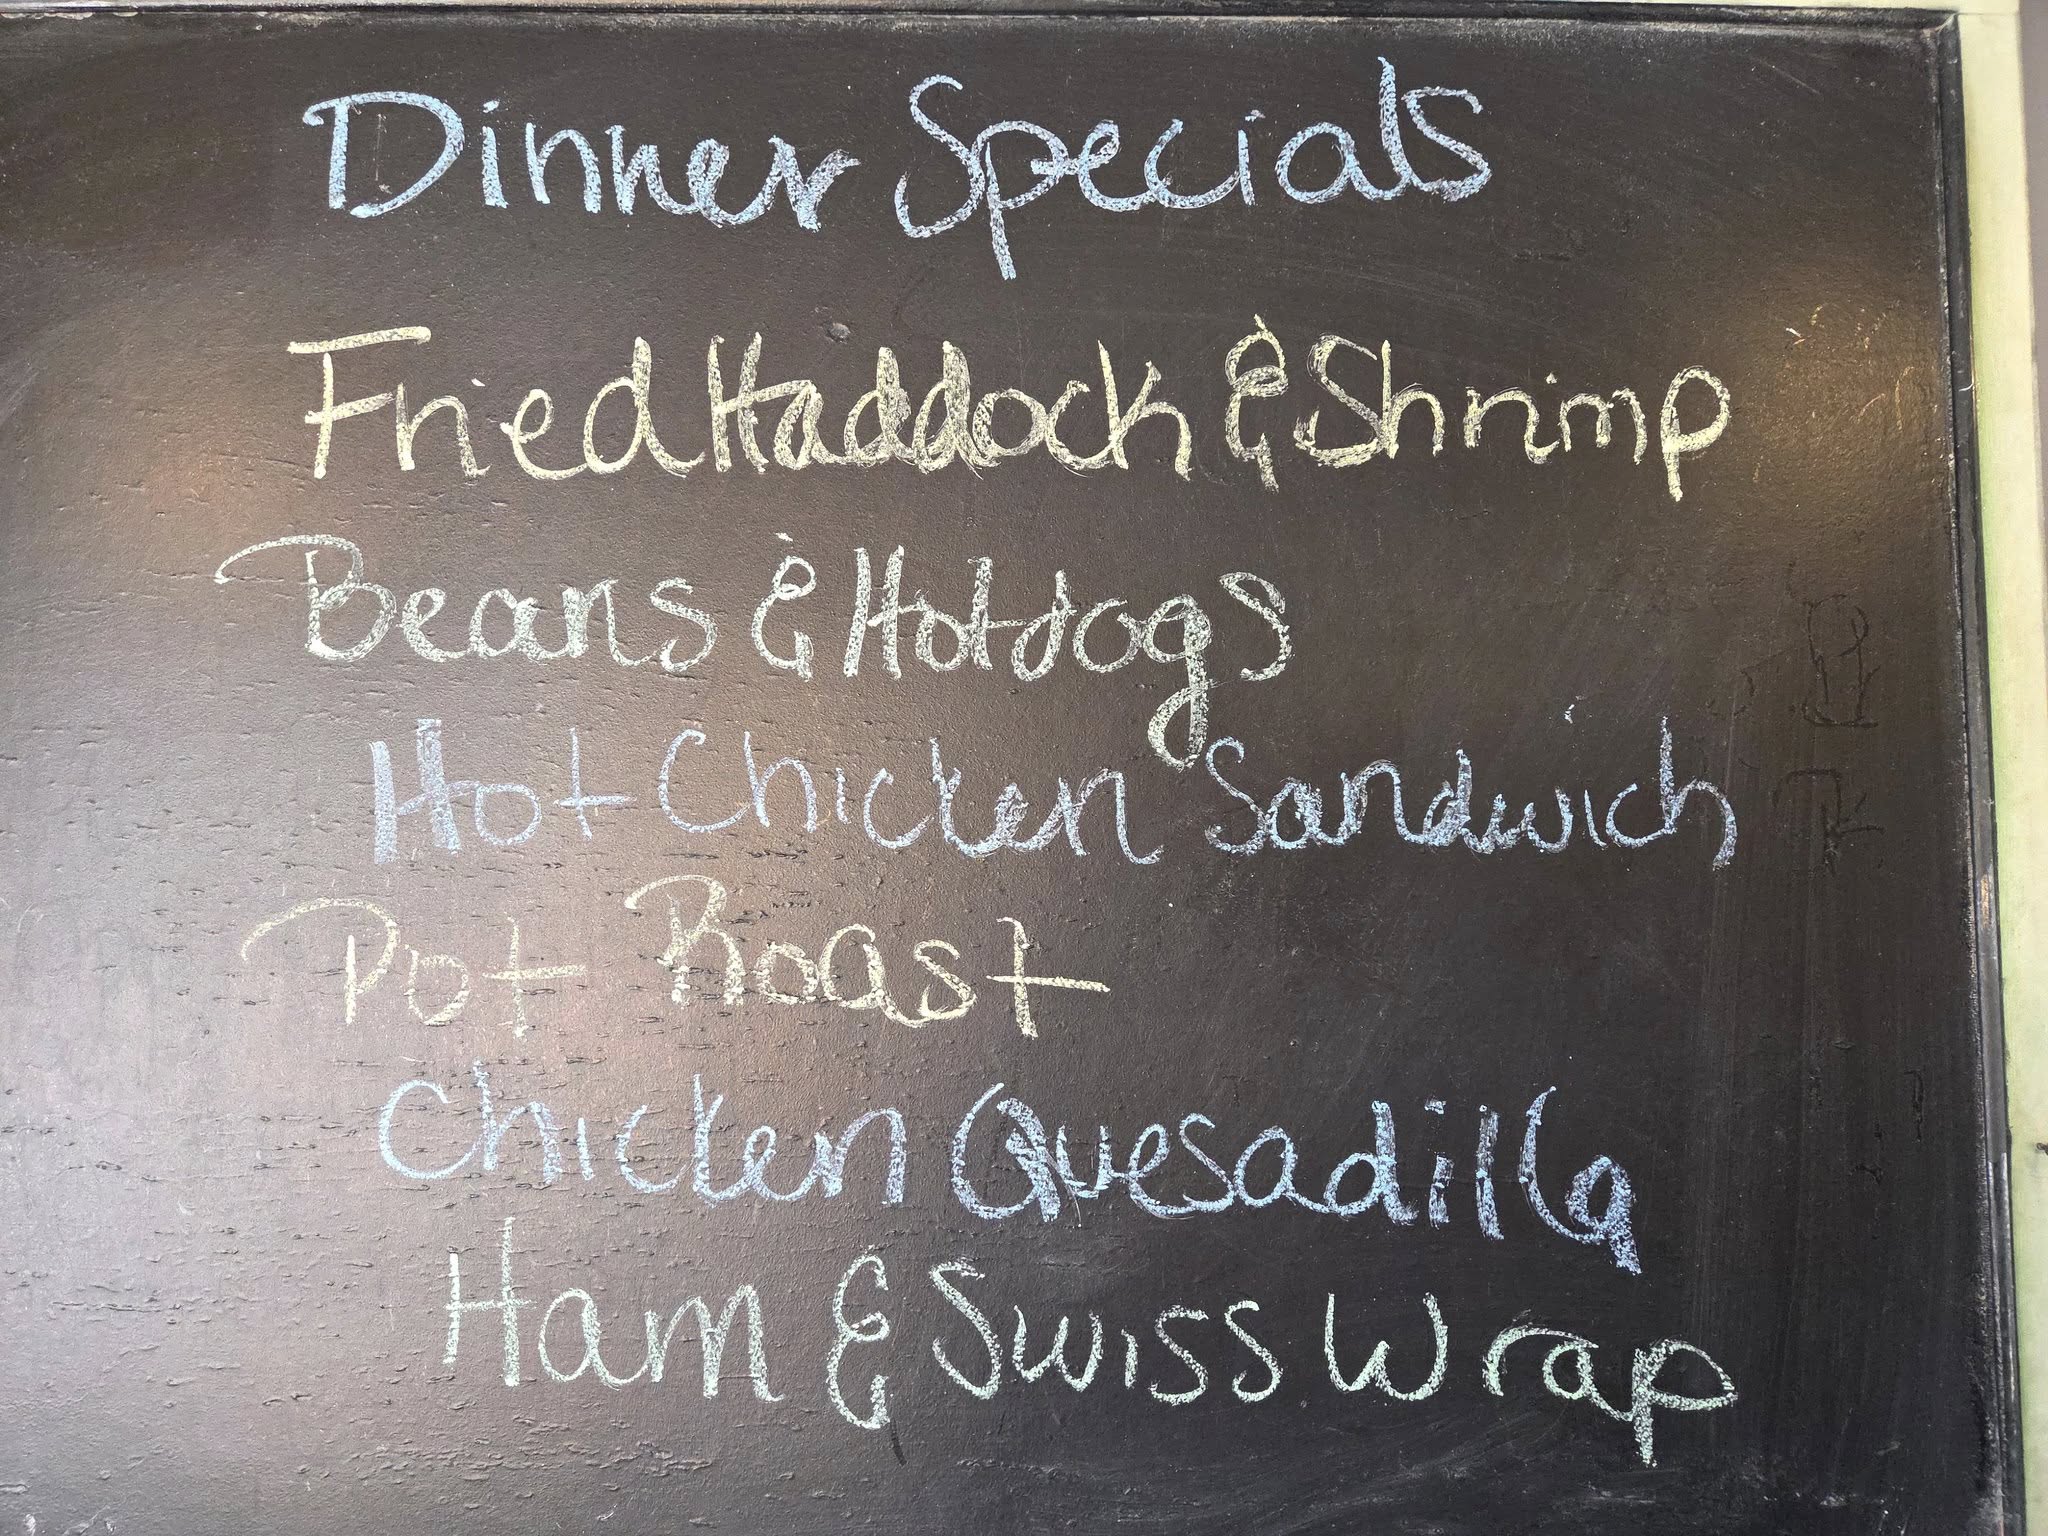 Dinner Specials
Fried Haddock & Shrimp
Beans & Hotdogs
Hot Chicken Sandwich
Pot Roast
Chicken Quesadilla
Ham & Swiss Wrap